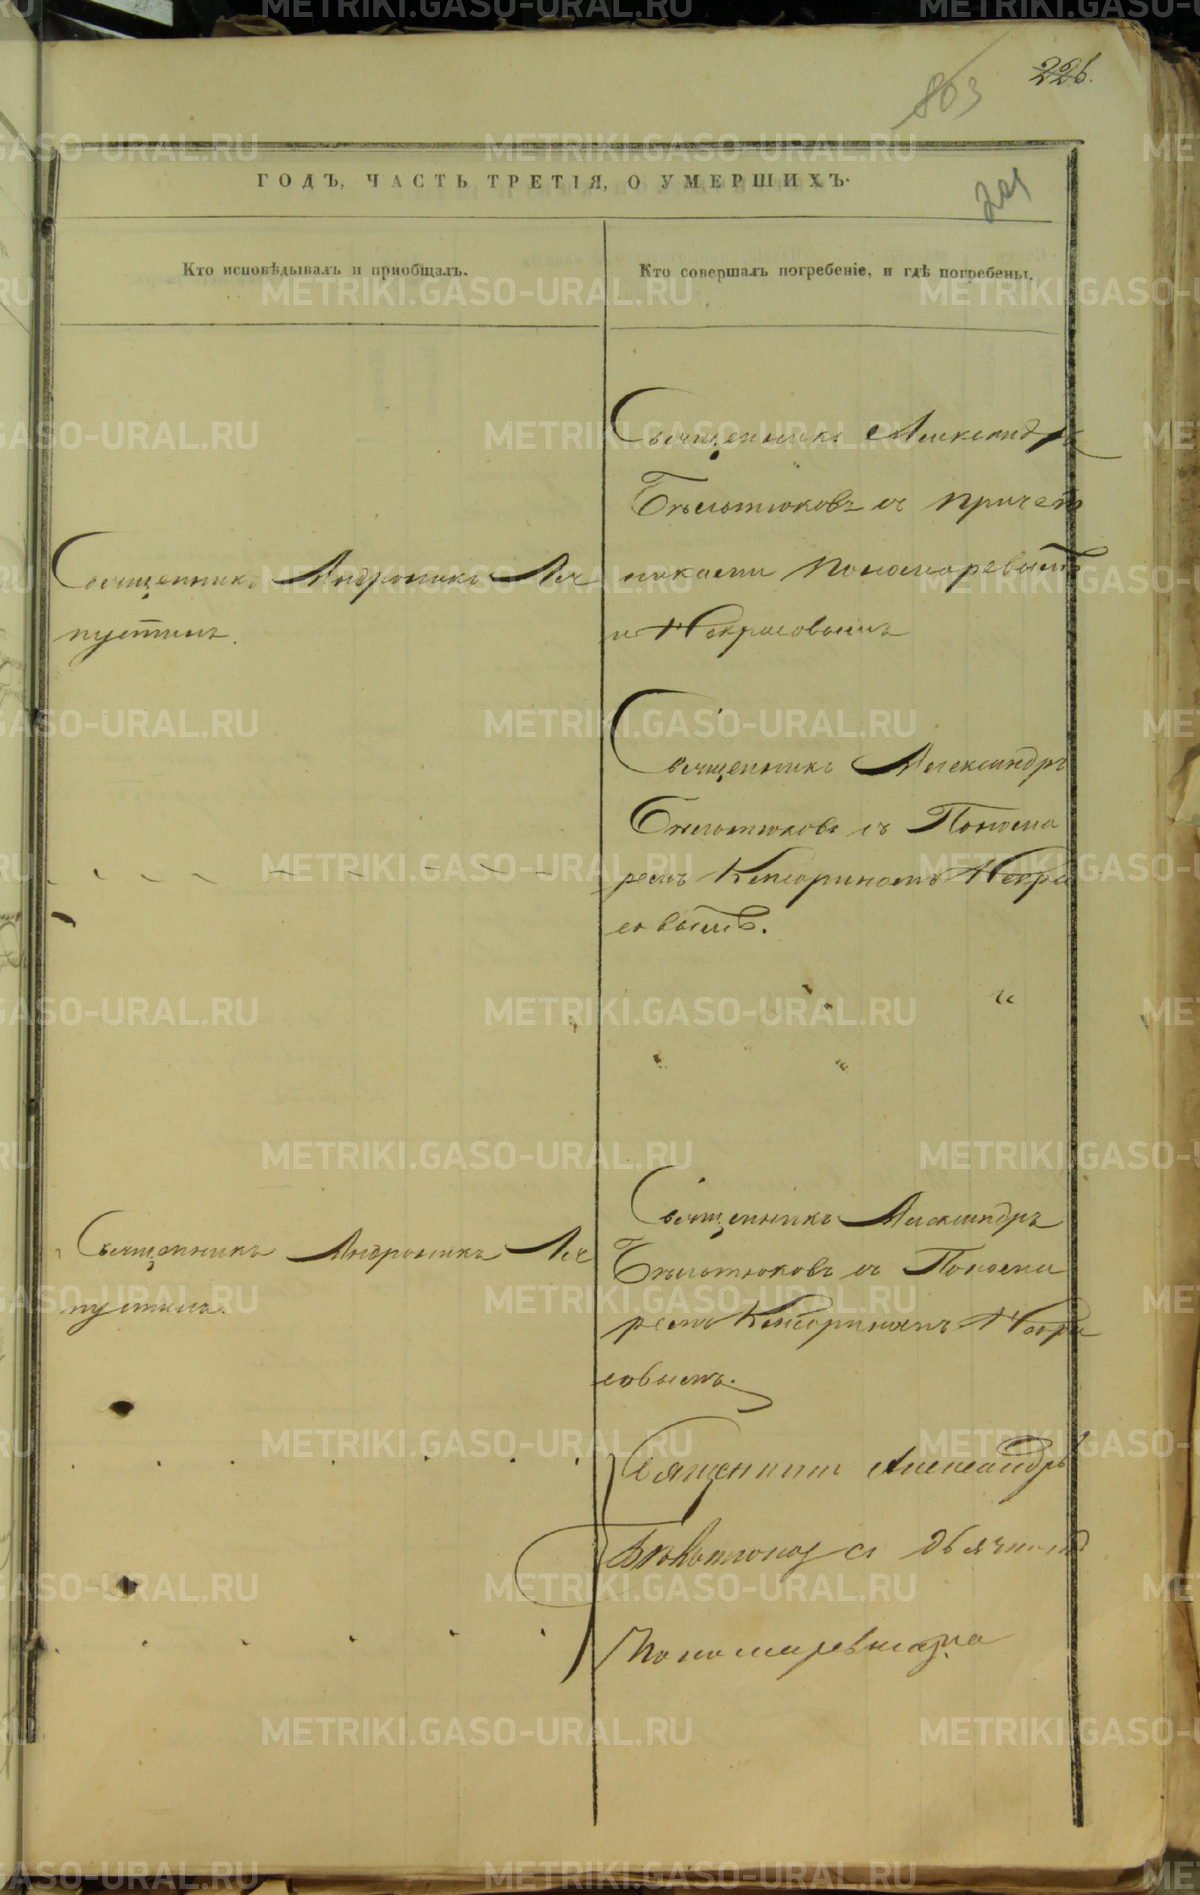 226.
803
ГОДЪ, ЧАСТЬ ТРЕТІЯ, О УМЕРШИХЪ.
Кто исповѣдывалъ и пріобщалъ.
Кто совершалъ погребеніе, и гдѣ погребены.
Священникъ Андроникъ Ля
пустинъ.
Священникъ Александръ
Бѣльтюковъ съ причет
никами Пономаревымъ
и Некрасовымъ
Священникъ Александръ
Бѣльтюковъ съ Понома
ремъ Кенсориномъ Некра
совымъ.
Священникъ Андроникъ Ля
пустинъ.
Священникъ Александръ
Бѣльтюковъ съ Понома
ремъ Кенсориномъ Некра
совымъ.
Священникъ Александръ
Бѣльтюковъ съ дьячкомъ
METRIKI.GASO-URAL.RU